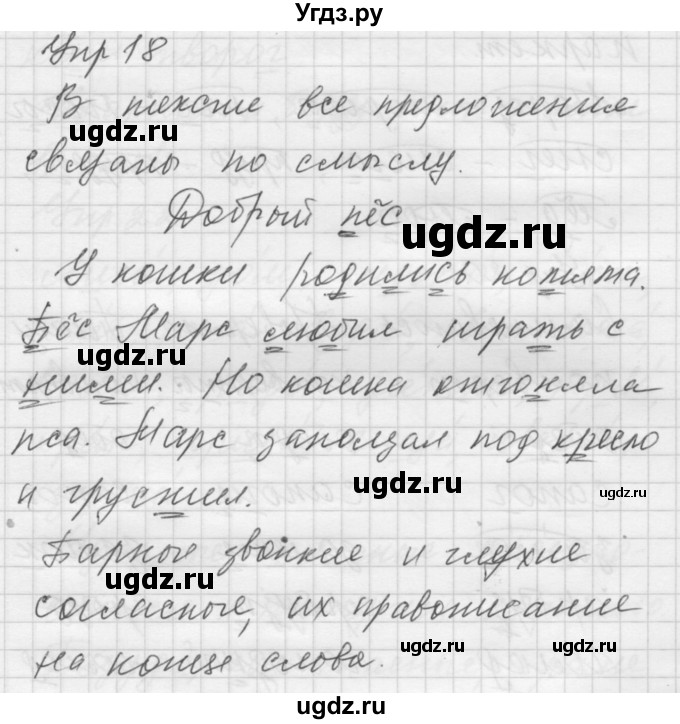 Угдз.ру
Упр 18
В тексте все предложения
ugdz.ru
связаны по смыслу.
ugdz.ru
Добрый пёс
ugdz.ru
У кошки родились котята.
Пёс Марс любил играть с
ugdz.ru
ugdz.ru
ними. Но кошка отгоняла
пса. Марс заползал под кресло
ugdz.ru
ugdz.ru
и грустил.
Парные звонкие и глухие
ugdz.ru
согласные, их правописание
ugdz.ru
ugdz.ru
на конце слова.
ugdz.ru